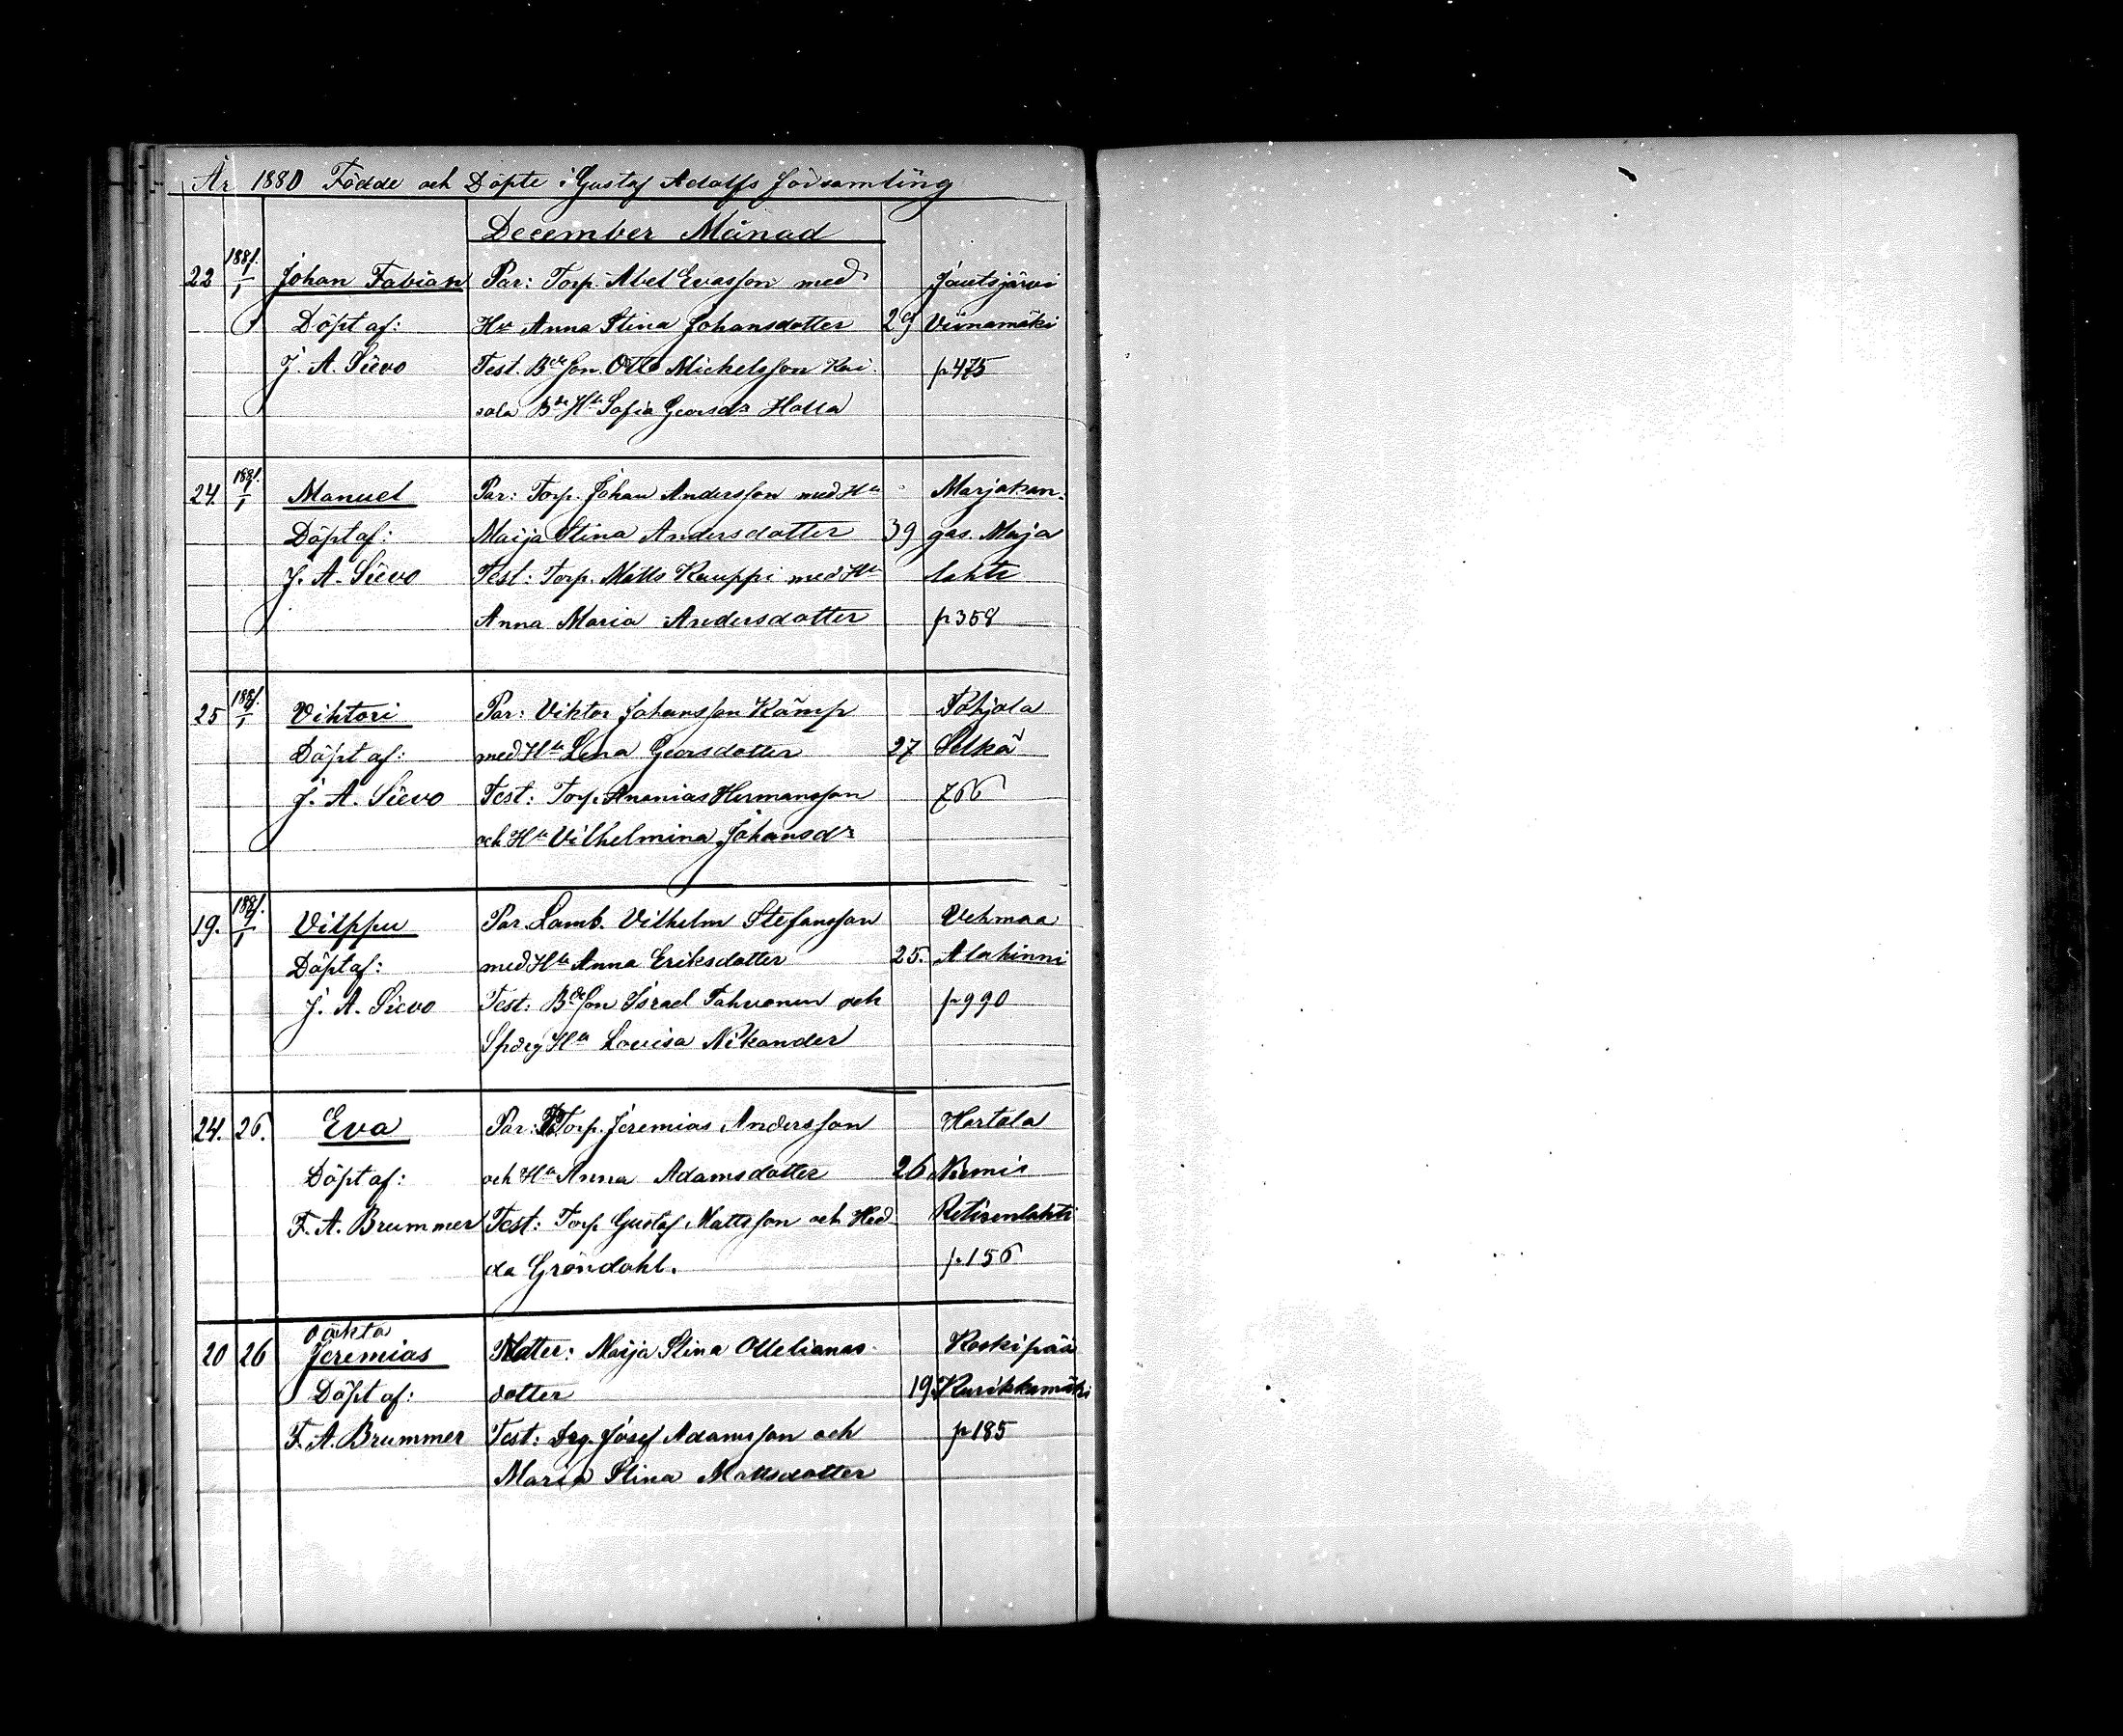 År 1880 Födde och Döpte i Gustaf Adolfs församling
December Månad
22 1881. 1/1 Johan Fabian Par: Torp. Abel Evasson med Jautsjärvi
Döpt af: Hu Anna Stina Johansdotter 29 Viinamäki
J. A. Sievo Test. Bde Son Otto Michelsson Kai p 475
sola Bde Hu Sofia Georsdr Halla
24. 1881. 1/1 Manuel Par: Torp. Johan Andersson med Hu Marjokan-
Döpt af: Maija Stina Andersdotter 39 gas. Maja
J. A. Sievo Test: Torp. Matts Kauppi med Hu lahti
Anna Maria Andersdotter p 358
25 1881. 1/1 Vihtori Par: Viktor Johansson Kämp Pohjola
Döpt af: med Hu Lena Georsdotter 27 Selkä
J. A. Sievo Test: Torp. Ananias Hermansson 766
och Hu Vilhelmina Johansdr
19. 1881. 1/1 Vilppu Par. Lamb. Vilhelm Stefansson Vehmaa
Döpt af: med Hu Anna Eriksdotter 25. Alahinni
J. A. Sievo Test: Bde Son Israel Tahvanen och p 990
Hu Lovisa Nikander
24. 26. Eva Par: Torp. Jeremias Andersson Hartola
Döpt af: och Hu Anna Adamsdotter 26 Niemis
F. A. Brummer Test: Torp Gustaf Mattsson och Hed-
da Gröndahl. p. 156
oäkta
20 26 Jeremias Moder: Maija Stina Ottelianas- Koskipää
Döpt af: dotter 19 Kurikkamäki
F. A. Brummer Test: Drg. Josef Adamsson och p 185
Maria Stina Mattsdotter